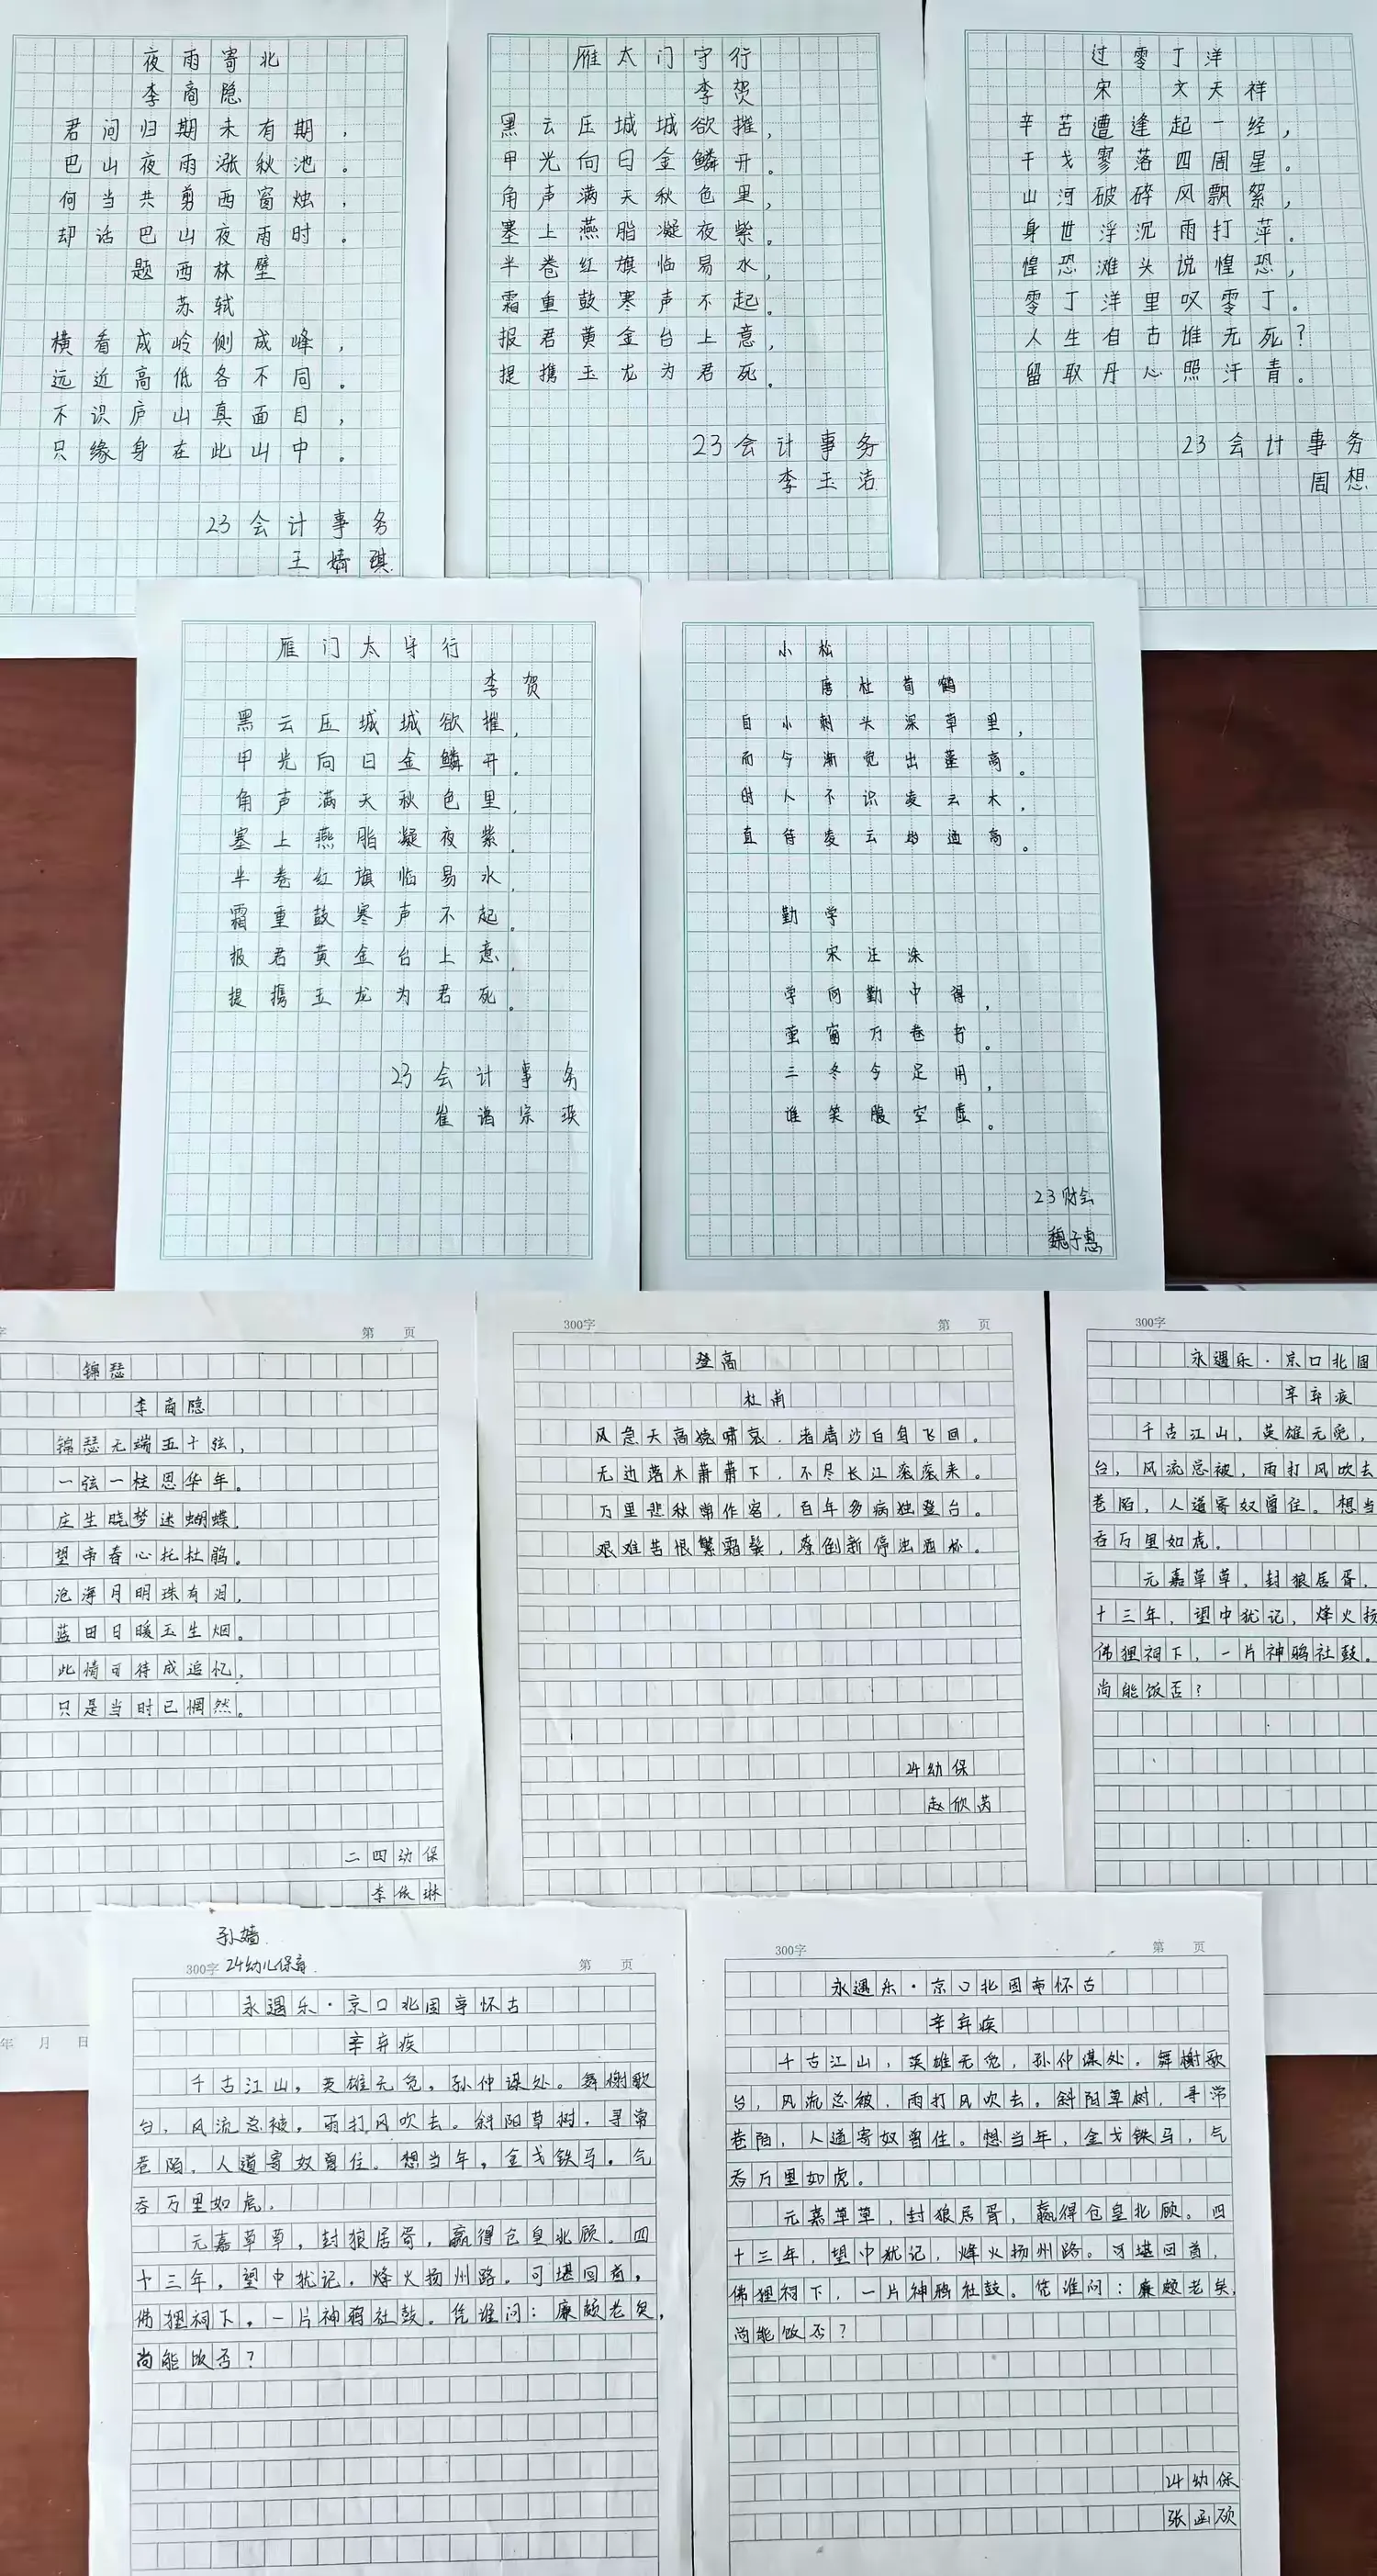 夜雨寄北
李商隐
君问归期未有期,
巴山夜雨涨秋池。
何当共剪西窗烛,
却话巴山夜雨时。
题西林壁
苏轼
横看成岭侧成峰,
远近高低各不同。
不识庐山真面目,
只缘身在此山中。
23会计事务
王婧琪
雁太门守行
李贺
黑云压城城欲摧,
甲光向日金鳞开。
角声满天秋色里,
塞上燕脂凝夜紫。
半卷红旗临易水,
霜重鼓寒声不起。
报君黄金台上意,
提携玉龙为君死。
23会计事务
李玉洁
过零丁洋
宋 文天祥
辛苦遭逢起一经,
干戈寥落四周星。
山河破碎风飘絮,
身世浮沉雨打萍。
惶恐滩头说惶恐,
零丁洋里叹零丁。
人生自古谁无死?
留取丹心照汗青。
23会计事务
周想
雁门太守行
李贺
黑云压城城欲摧,
甲光向日金鳞开。
角声满天秋色里,
塞上燕脂凝夜紫。
半卷红旗临易水,
霜重鼓寒声不起。
报君黄金台上意,
提携玉龙为君死。
23会计事务
崔宗瑛
小松
唐杜荀鹤
自小刺头深草里,
而今渐觉出蓬高。
时人不识凌云木,
直待凌云始道高。
勤学
宋汪洙
学问勤中得,
萤窗万卷书。
三冬今足用,
谁笑腹空虚。
23财会
魏子惠
字
第 页
锦瑟
李商隐
锦瑟无端五十弦,
一弦一柱思华年。
庄生晓梦迷蝴蝶,
望帝春心托杜鹃。
沧海月明珠有泪,
蓝田日暖玉生烟。
此情可待成追忆,
只是当时已惘然。
二四幼保
李依琳
年 月 日
300字
第 页
登高
杜甫
风急天高猿啸哀,渚清沙白鸟飞回。
无边落木萧萧下,不尽长江滚滚来。
万里悲秋常作客,百年多病独登台。
艰难苦恨繁霜鬓,潦倒新停浊酒杯。
24幼保
赵欣芮
300字
永遇乐·京口北固
辛弃疾
千古江山,英雄无觅,
台,风流总被,雨打风吹去
巷陌,人道寄奴曾住。想当
吞万里如虎。
元嘉草草,封狼居胥,
十三年,望中犹记,烽火扬
佛狸祠下,一片神鸦社鼓。
尚能饭否?
孙嫱
300字 24幼儿保育
第 页
永遇乐·京口北固亭怀古
辛弃疾
千古江山,英雄无觅,孙仲谋处。舞榭歌
台,风流总被,雨打风吹去。斜阳草树,寻常
巷陌,人道寄奴曾住。想当年,金戈铁马,气
吞万里如虎。
元嘉草草,封狼居胥,赢得仓皇北顾。四
十三年,望中犹记,烽火扬州路。可堪回首,
佛狸祠下,一片神鸦社鼓。凭谁问:廉颇老矣,
尚能饭否?
300字
第 页
永遇乐·京口北固亭怀古
辛弃疾
千古江山,英雄无觅,孙仲谋处。舞榭歌
台,风流总被,雨打风吹去。斜阳草树,寻常
巷陌,人道寄奴曾住。想当年,金戈铁马,气
吞万里如虎。
元嘉草草,封狼居胥,赢得仓皇北顾。四
十三年,望中犹记,烽火扬州路。可堪回首,
佛狸祠下,一片神鸦社鼓。凭谁问:廉颇老矣,
尚能饭否?
24幼保
张函硕